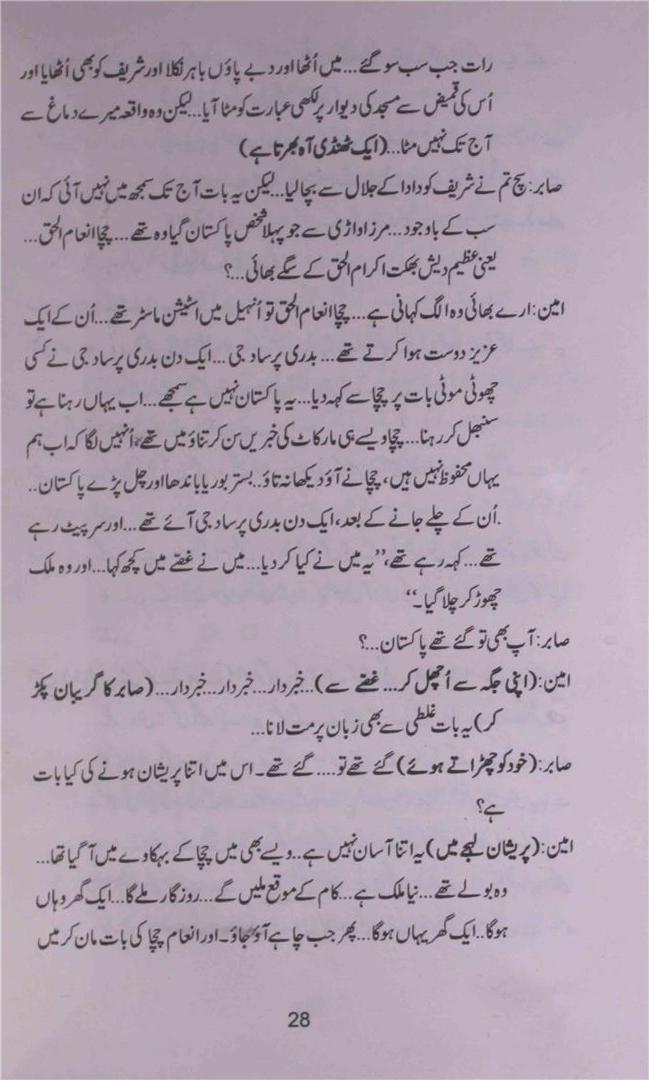 رات جب سب سو گئے... میں اُٹھا اور دبے پاؤں باہر نکلا اور شریف کو بھی اُٹھایا اور
اُس کی قمیض سے مسجد کی دیوار پر لکھی عبارت کو مٹا آیا... لیکن وہ واقعہ میرے دماغ سے
آج تک نہیں مٹا... (ایک ٹھنڈی آہ بھرتا ہے)
صابر: سچ تم نے شریف کو دادا کے جلال سے بچا لیا... لیکن یہ بات آج تک سمجھ میں نہیں آئی کہ ان
سب کے باوجود... مرزا واڑی سے جو پہلا شخص پاکستان گیا وہ تھے... چچا انعام الحق...
یعنی عظیم دیش بھکت اکرام الحق کے سگے بھائی...؟
امین: ارے بھائی وہ الگ کہانی ہے... چچا انعام الحق تو اُنہیل میں اسٹیشن ماسٹر تھے... اُن کے ایک
عزیز دوست ہوا کرتے تھے... بدری پرساد جی... ایک دن بدری پرساد جی نے کسی
چھوٹی موٹی بات پر چچا سے کہہ دیا... یہ پاکستان نہیں ہے سمجھے... اب یہاں رہنا ہے تو
سنبھل کر رہنا... چچا ویسے ہی مار کاٹ کی خبریں سن کر تناؤ میں تھے، اُنہیں لگا کہ اب ہم
یہاں محفوظ نہیں ہیں، چچا نے آؤ دیکھا نہ تاؤ.. بستر بوریا باندھا اور چل پڑے پاکستان..
.اُن کے چلے جانے کے بعد، ایک دن بدری پرساد جی آئے تھے... اور سر پیٹ رہے
تھے... کہہ رہے تھے، ”یہ میں نے کیا کر دیا... میں نے غصّے میں کچھ کہا... اور وہ ملک
چھوڑ کر چلا گیا۔“
صابر: آپ بھی تو گئے تھے پاکستان...؟
امین: (اپنی جگہ سے اُچھل کر... غصّے سے)... خبردار... خبردار... خبردار... (صابر کا گریبان پکڑ
کر) یہ بات غلطی سے بھی زبان پر مت لانا...
صابر: (خود کو چھڑاتے ہوئے) گئے تھے تو.... گئے تھے۔ اس میں اتنا پریشان ہونے کی کیا بات
ہے؟
امین: (پریشان لہجے میں) یہ اتنا آسان نہیں ہے.. ویسے بھی میں چچا کے بہکاوے میں آ گیا تھا...
وہ بولے تھے... نیا ملک ہے... کام کے موقع ملیں گے... روزگار ملے گا... ایک گھر وہاں
ہوگا.. ایک گھر یہاں ہوگا... پھر جب چاہے آؤ جاؤ۔ اور انعام چچا کی بات مان کر میں
28